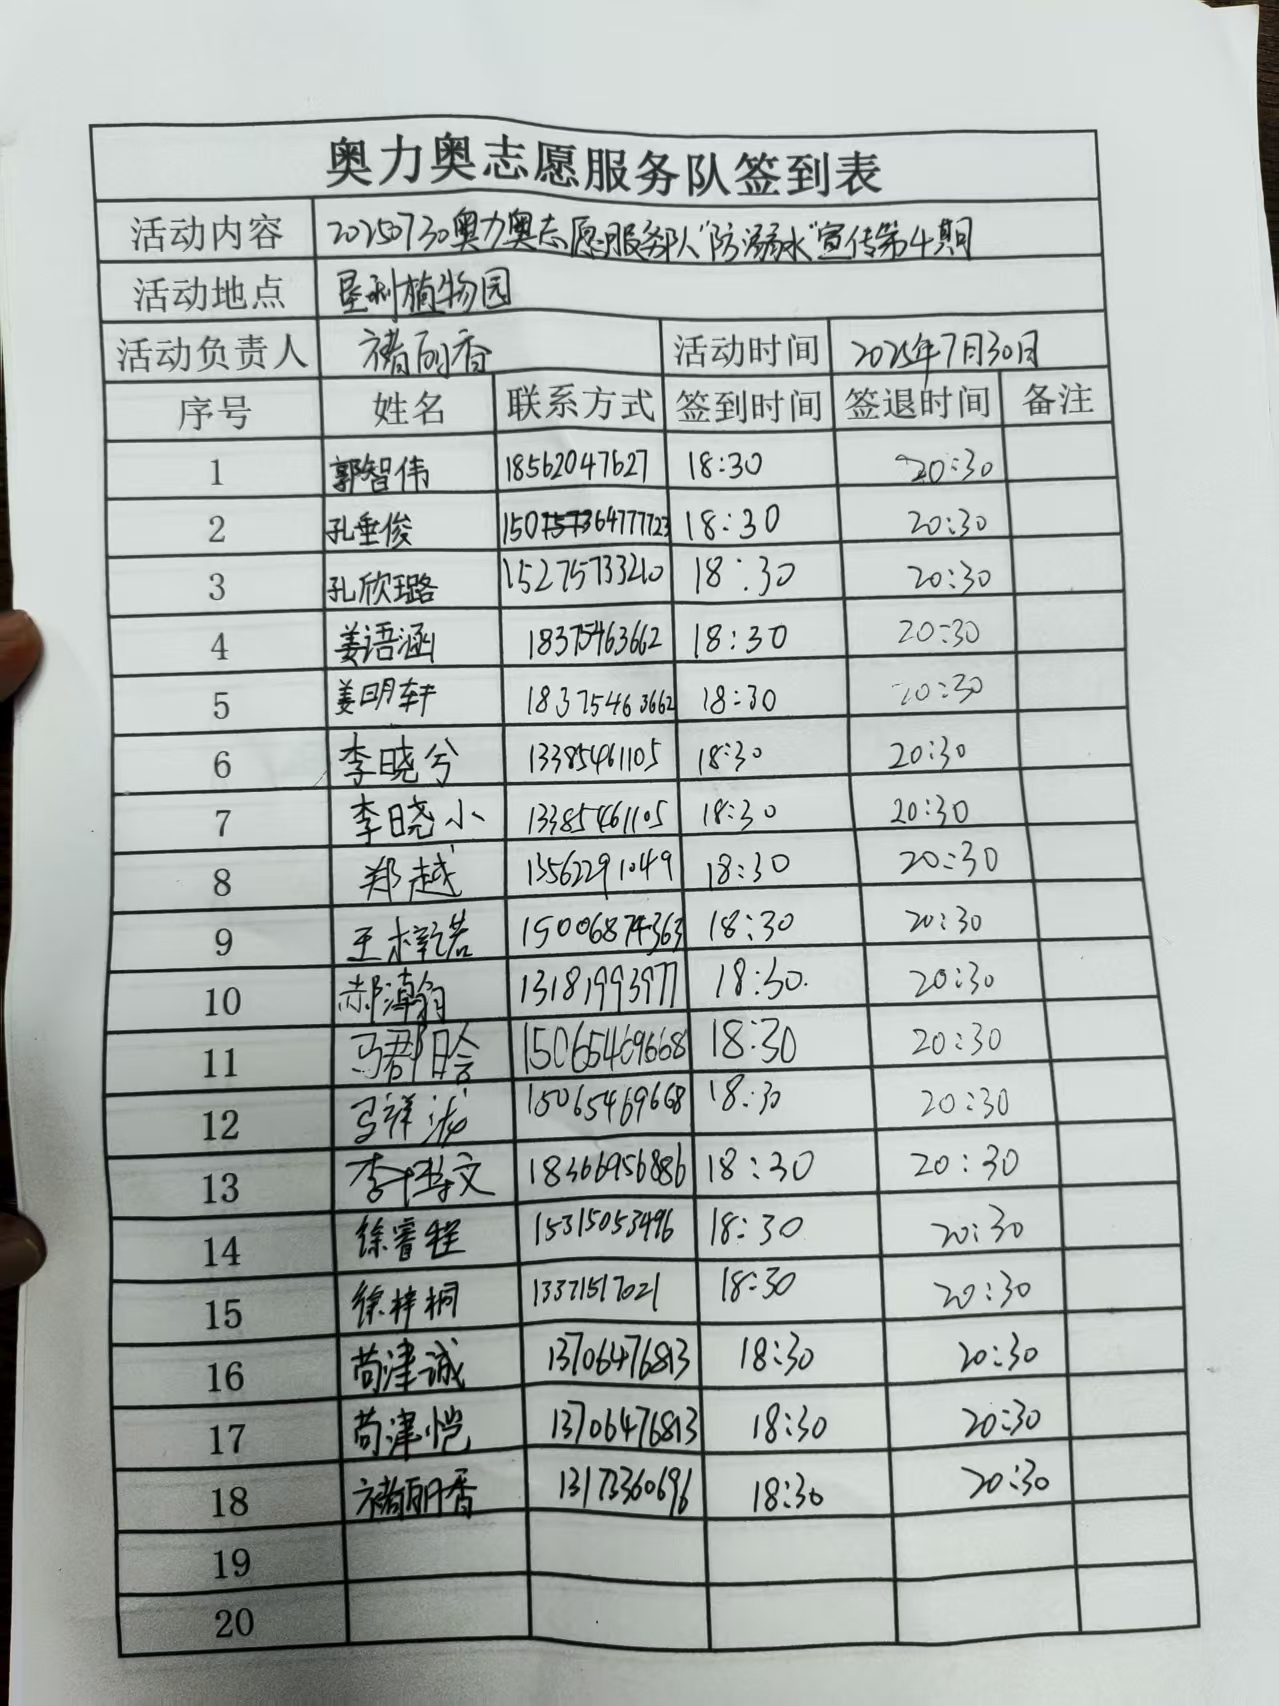 奥力奥志愿服务队签到表
活动内容 20250730奥力奥志愿服务队“防溺水”宣传第4期
活动地点 垦利植物园
活动负责人 褚丽香 活动时间 2025年7月30日
序号 姓名 联系方式 签到时间 签退时间 备注
1 郭智伟 18562047627 18:30 20:30
2 孔垂俊 18:30 20:30
3 孔欣璐 15275733210 18:30 20:30
4 姜语涵 18375463662 18:30 20:30
5 姜明轩 18375463662 18:30 20:30
6 李晓兮 13385461105 18:30 20:30
7 李晓小 13385461105 18:30 20:30
8 郑越 13562291049 18:30 20:30
9 王梓诺 15006874363 18:30 20:30
10 郝瀚翔 13181993977 18:30 20:30
11 马郡晗 15065469668 18:30 20:30
12 马祥 15065469668 18:30 20:30
13 李博文 18366956886 18:30 20:30
14 徐睿程 15315053496 18:30 20:30
15 徐梓桐 13371517021 18:30 20:30
16 苟津诚 13706476813 18:30 20:30
17 苟津恺 13706476813 18:30 20:30
18 褚丽香 13173360696 18:30 20:30
19
20